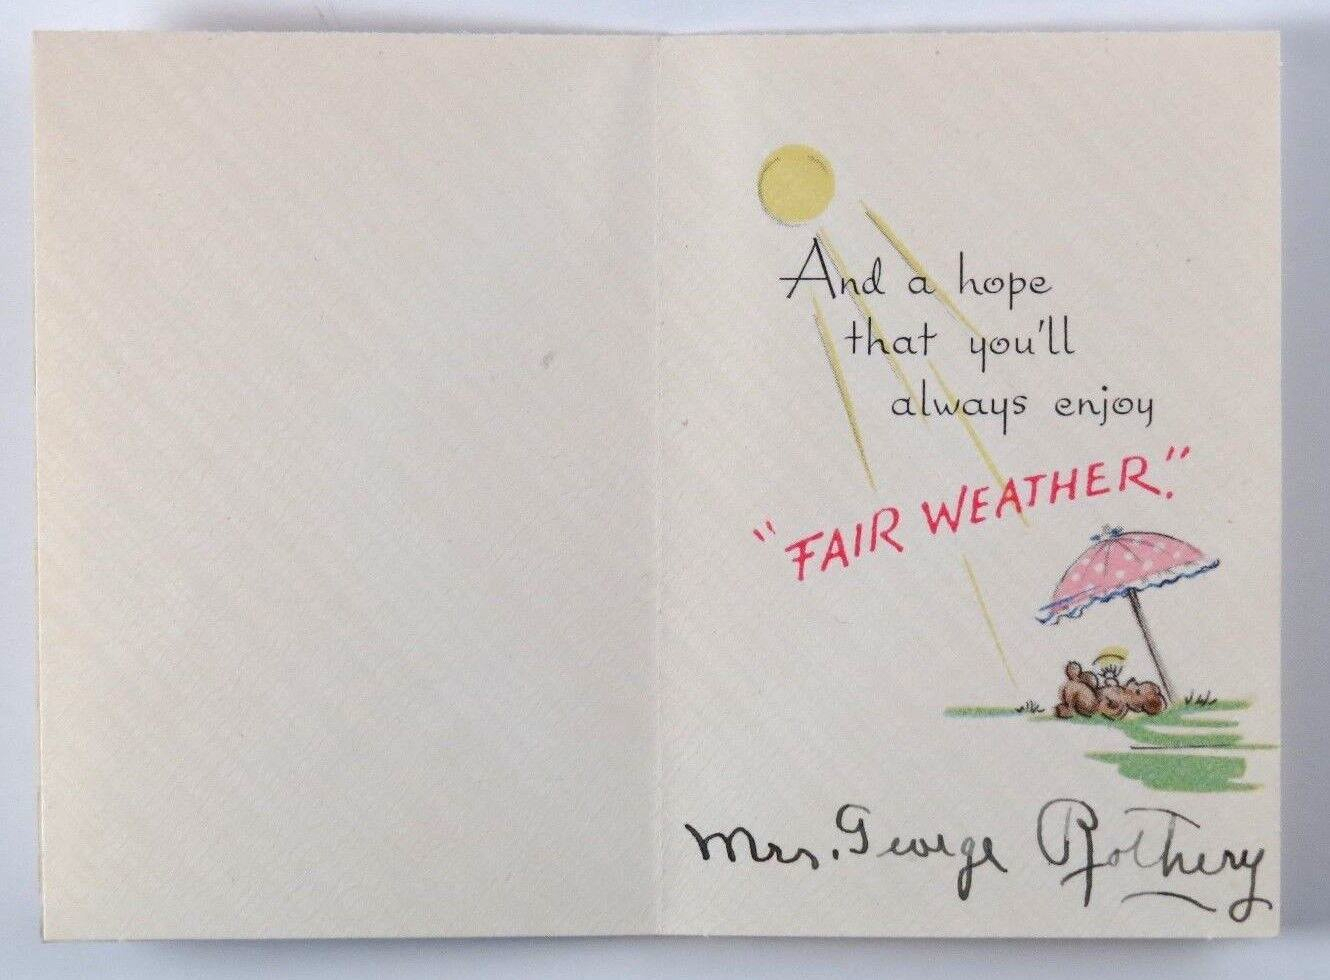 And a hope
that you'll
always enjoy
"FAIR WEATHER."
Mrs. George Rothery